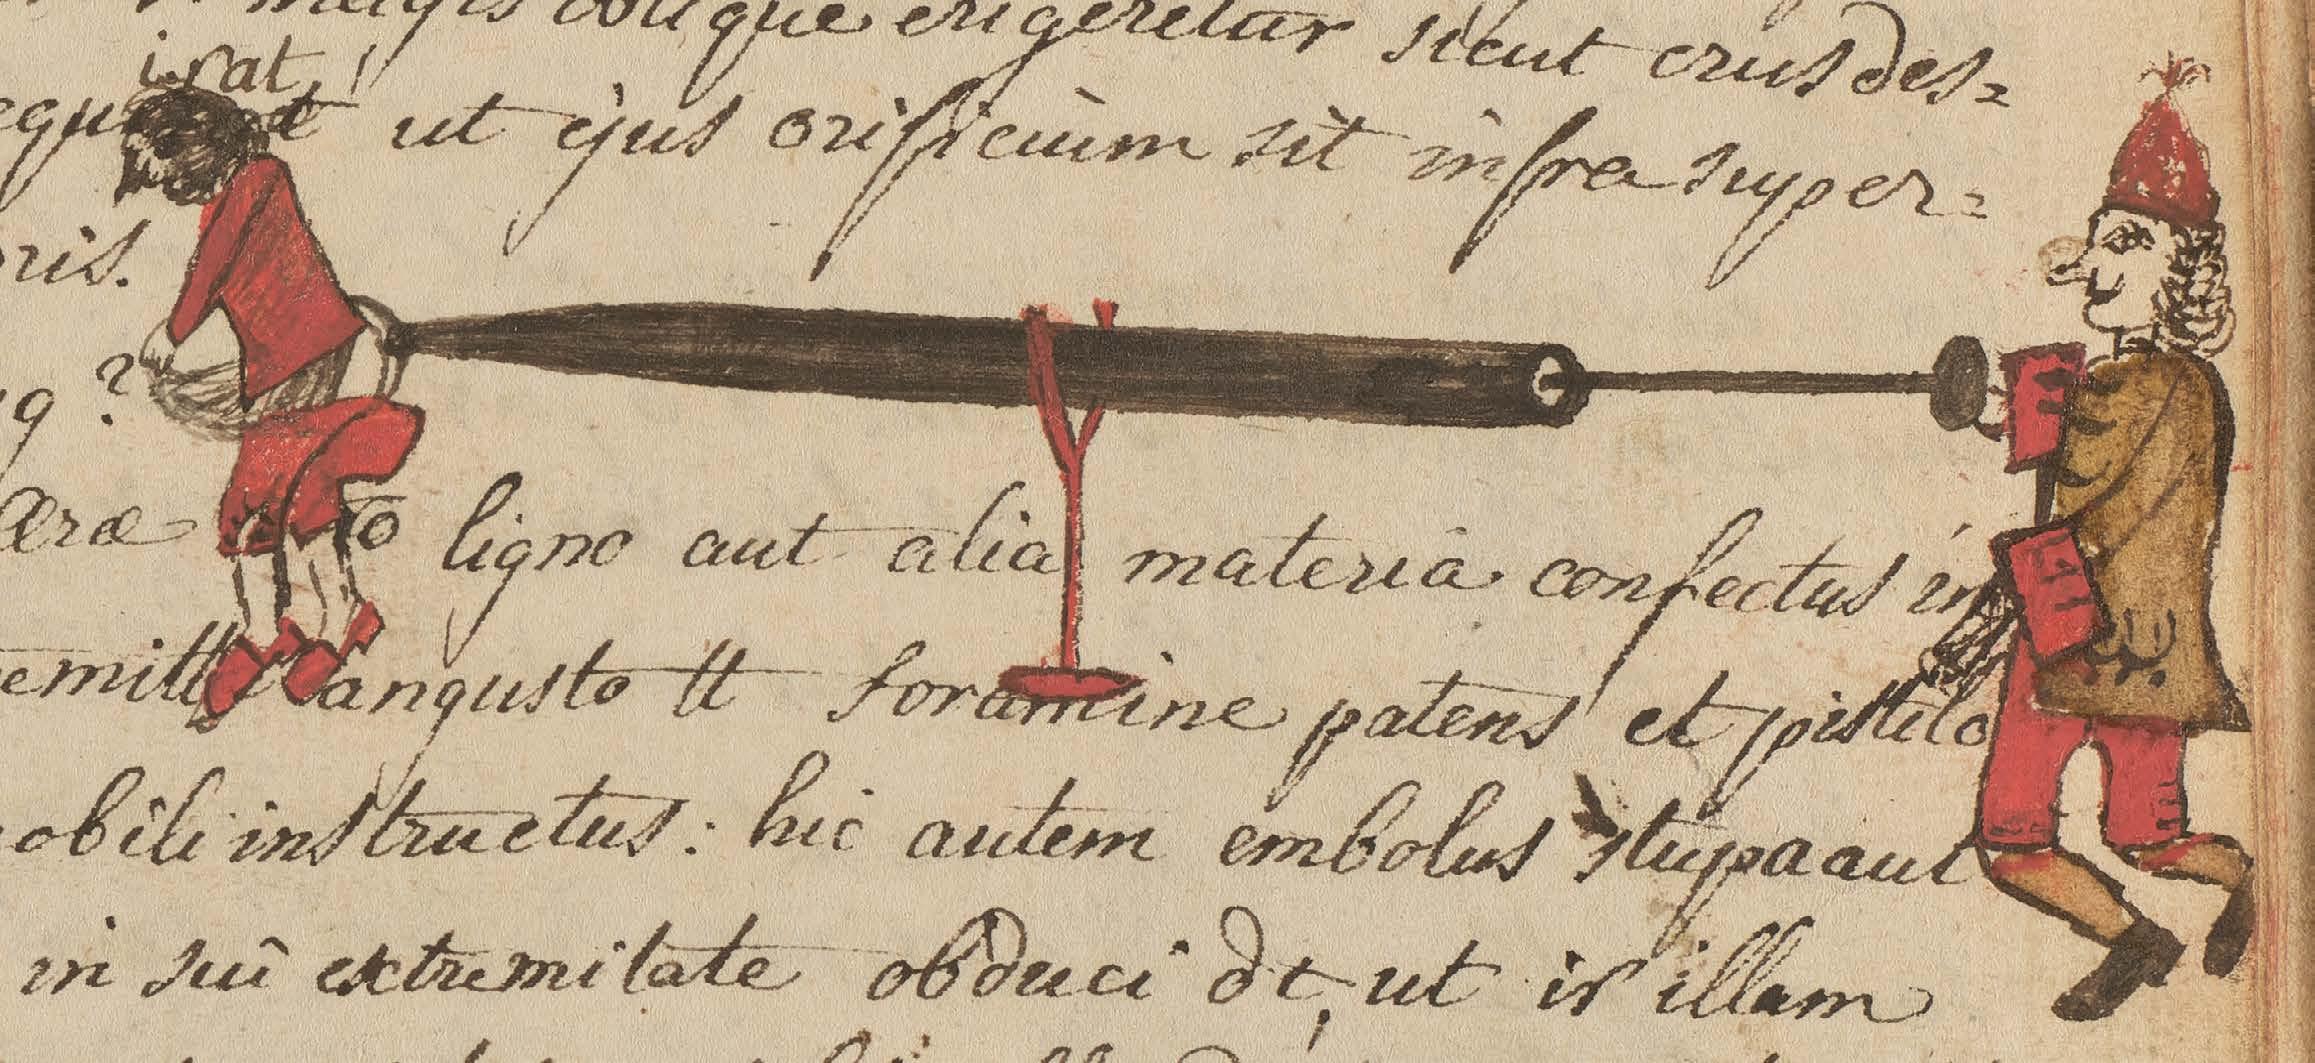 magis oblique erigeretur sicut crus des=
irat,
ut ejus orificium sit infra super=
oris.
q ?
æræ ligno aut alia materia confectus in
emitt angusto tt foramine patens et pistilo
obili instructus: hic autem embolus stupa aut
in sui extremitate obduci dt, ut ir illam